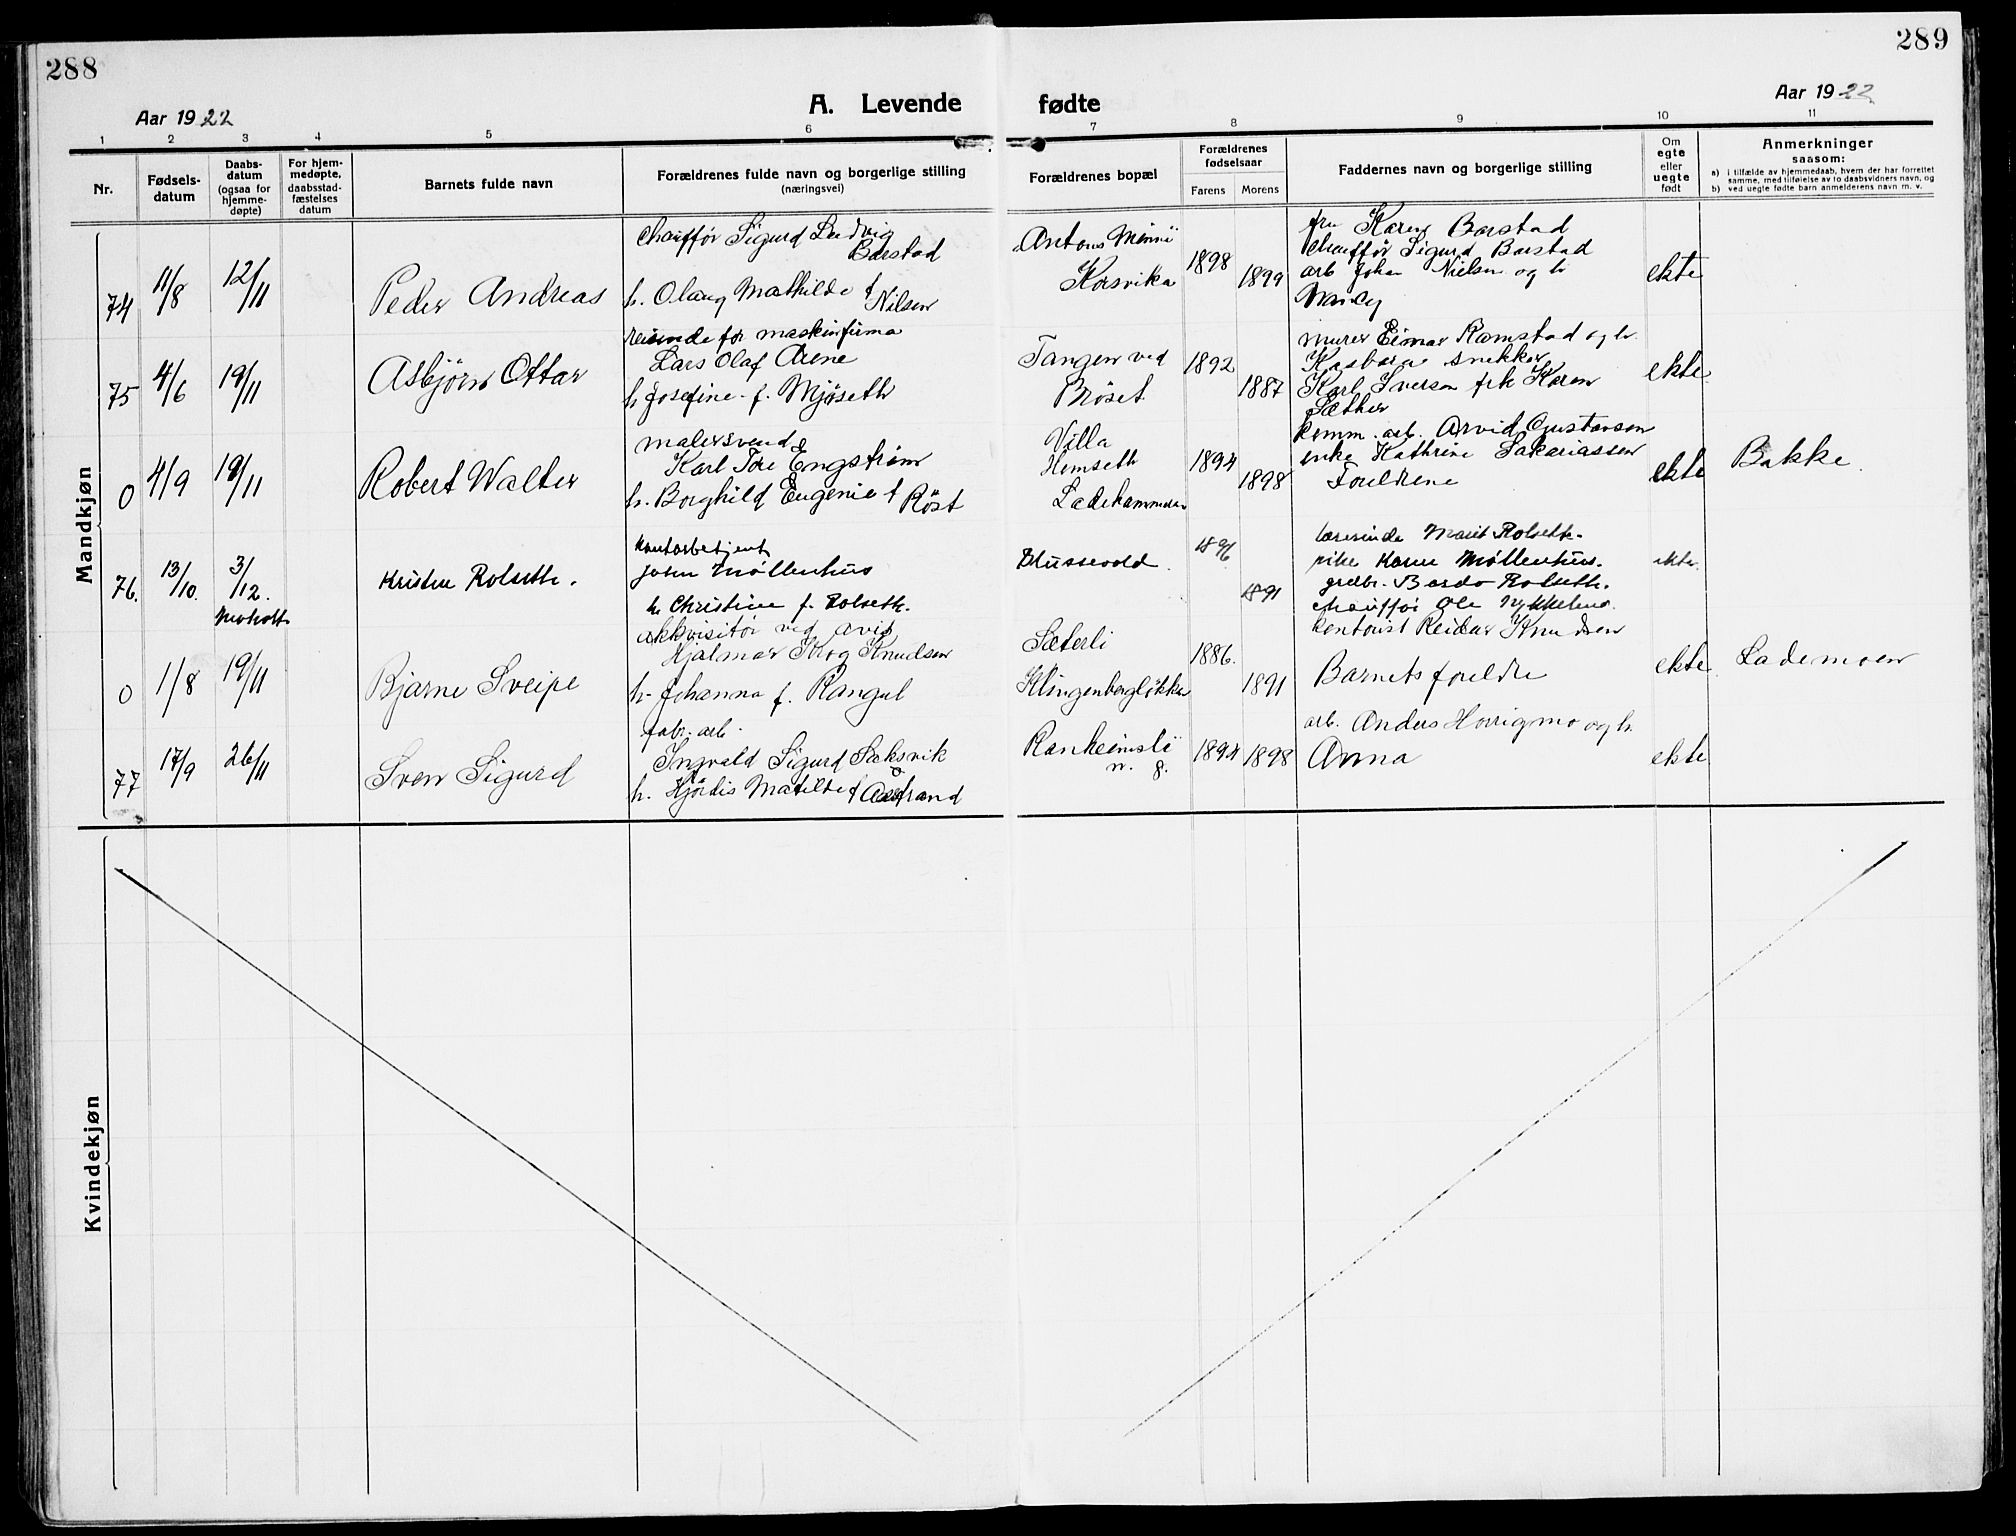 288
289
Aar 1922
A. Levende fødte
Aar 1922
1 2 3 4 5 6 7 8 9 10 11
Nr.
Fødsels-
datum
Daabs-
datum
(ogsaa for
hjemme-
døpte)
For hjem-
medøpte,
daabsstad-
fæstelses
datum
Barnets fulde navn
Forældrenes fulde navn og borgerlige stilling
(næringsvei)
Forældrenes bopæl
Forældrenes
fødselsaar
Farens Morens
Faddernes navn og borgerlige stilling
Om
egte
eller
uegte
født
Anmerkninger
saasom:
a) i tilfælde av hjemmedaab, hvem der har forrettet
samme, med tilføielse av to daabsvidners navn, og
b) ved uegte fødte barn anmelderens navn m. v.
Mandkjøn
74
11/8
12/11
Peder Andreas
Chauffør Sigurd Ludvig
Barstad
h. Olaug Mathilde f
Nilsen
Antons Minni
Korsvika
1898
1899
fru Karen Barstad
Chauffør Sigurd Barstad
arb Johan Nielsen og h
ekte
75
4/6
19/11
Asbjørn Ottar
reisende for maskinfirma
Lars Olaf Arene
h. Josefine f. Mjøseth
Tangen ved
Brøset
1892
1887
murer Eimar Ramstad og h.
snekker
Karl Iversen frk Karen
Sæther
ekte
0
4/9
19/11
Robert Walter
malersvend
Karl Tore Engstrøm
h. Borghild Eugenie f Röst
Villa
Hemseth
Ladehammeren
1894
1898
komm. arb. Arvid Gustavsen
enke Kathrine Sakariassen
Foreldrene
ekte
Bakke.
76.
13/10.
3/12.
Moholt
Kristen Rolseth.
John Møllenhus
h. Christine f. Rolseth.
Blussevold.
1896
1891
lærerinde Marit Rolseth.
pike Karen Møllenhus.
grdbr. Bardo Rolseth.
chauffør Ole Nykkelmo.
ekte.
0
1/8
19/11
Bjarne Sveipe
akkvisitør ved avis
Hjalmar Krog Knudsen
h. Johanna f. Rangul
Sæterli
Klingenbergløkka
1886.
1891
kontorist Reidar Knudsen
Barnets foreldre
ekte
Lademoen
77
17/9
26/11
Sven Sigurd
fabr. arb.
Ingvald Sigurd Saksvik
h. Hjördis Matilde f Aastrand
Ranheimsli
n. g.
1894
1898
arb. Anders Horrigmo og h.
Anna
ekte
Kvindekjøn